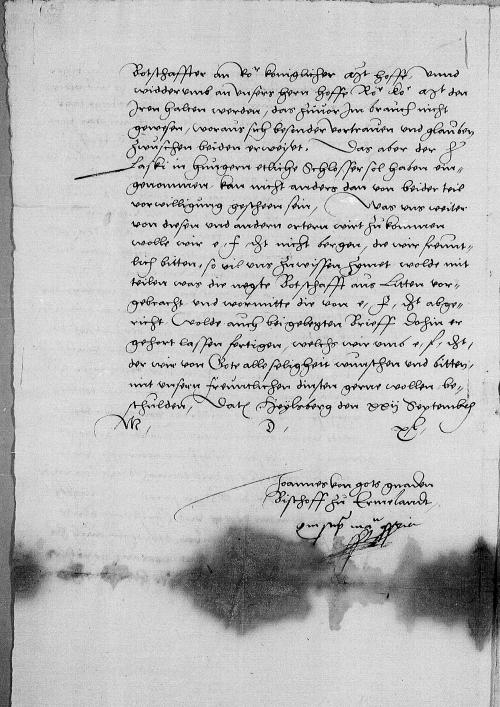 Botschaffter an Ror koniglicher Mat hoffe, unnd
widderumb an unsers hern hoffe Ror Kor Mat den
Iren halten werden, das zuvor Im brauch nicht
gewesen, woraus sich besonder vertrauen und glauben
zwuschen beiden erweist. Das aber der H
Laski in Hungern etliche Schlosser sol haben ein-
genommen, kan nicht anders dan von beider teil
vorwilligung gescheen sein. Was uns weiter
von diesen und andern ortern wirt zukommen
wolle wir e. f. Dt nicht bergen, die wir freunt-
lich bitten, so vil uns zuwissen zymet wolde mit
teilen was die negste Botschafft aus Litten vor-
gebracht und wormitte die von e. f. Dt abge-
richt Wolde auch bei gelegten Brieff dohin er
gehort lassen fertigen, welchs wir umb e. f. Dt.
der wir von Gote alle seligkeit wunschen und bitten,
mit unsern freuntlichen dinsten gerne wollen be-
schulden. Datum Heylsberg den xxij Septembris
M. D. xl.
Joannes von gots gnaden
Bischoff zu Ermelandt